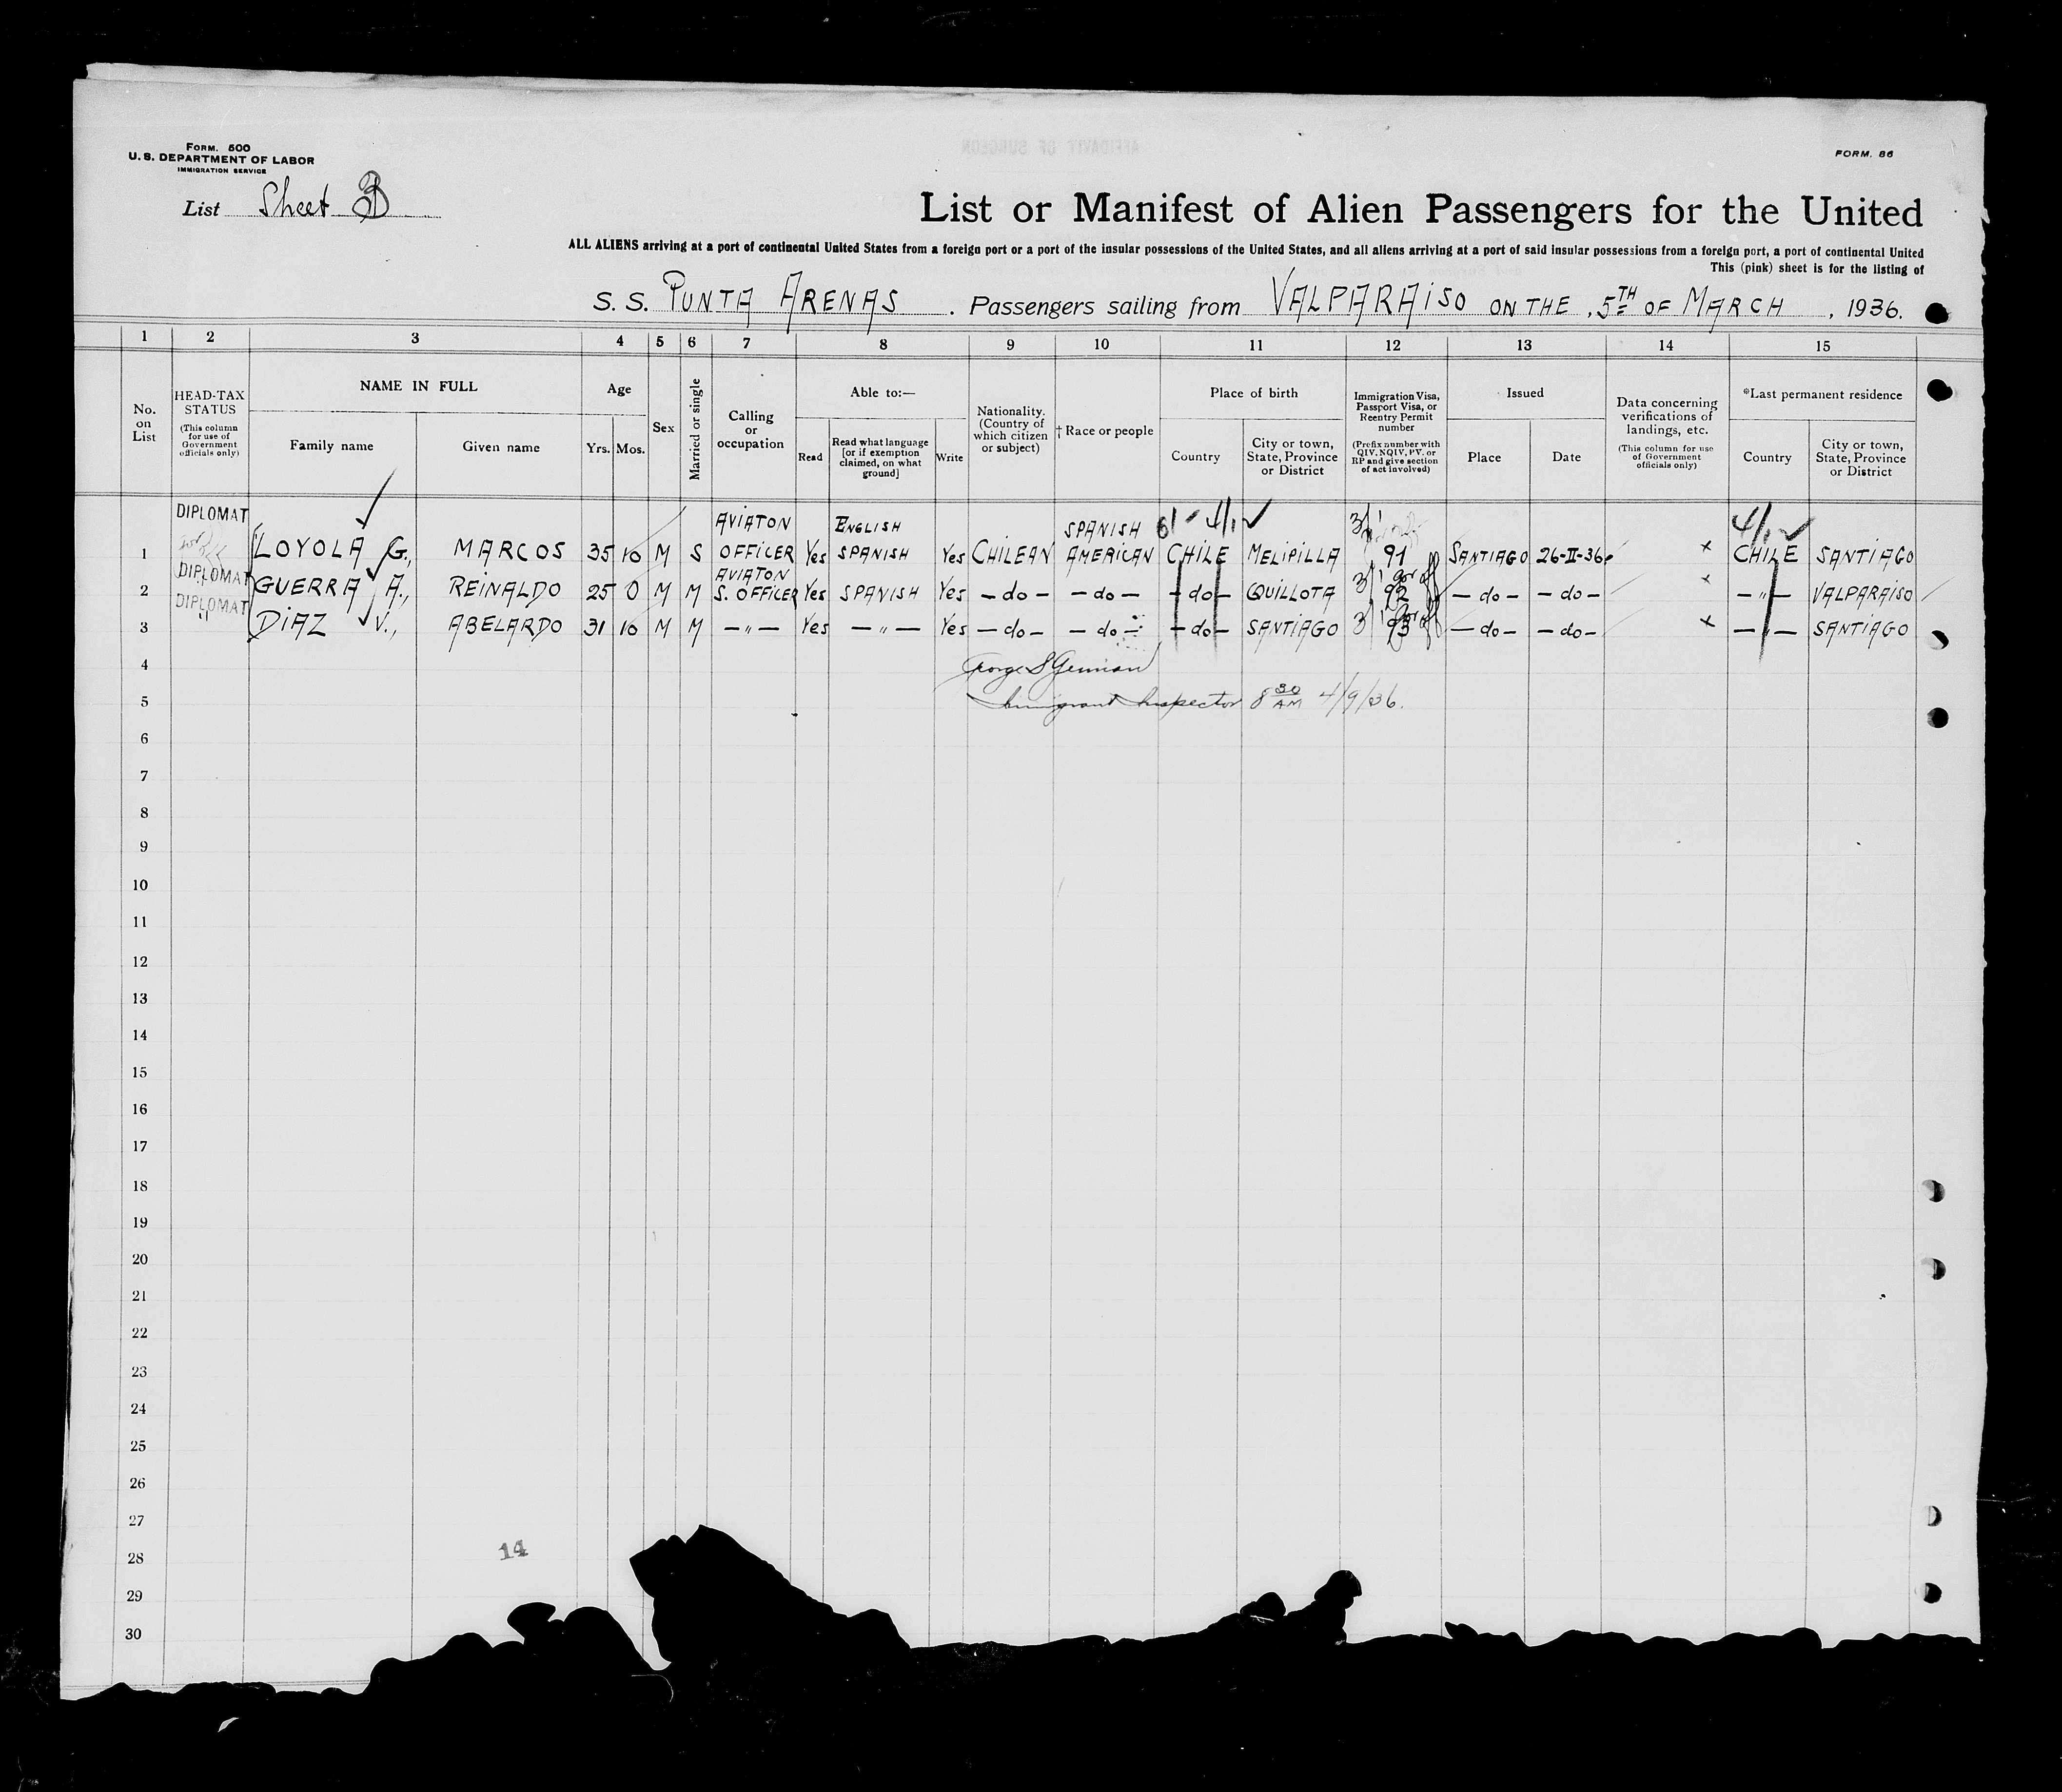 FORM. 500
U. S. DEPARTMENT OF LABOR
IMMIGRATION SERVICE
FORM. 86
List Sheet 3
List or Manifest of Alien Passengers for the United
ALL ALIENS arriving at a port of continental United States from a foreign port or a port of the insular possessions of the United States, and all aliens arriving at a port of said insular possessions from a foreign port, a port of continental United
This (pink) sheet is for the listing of
S. S. PUNTA ARENAS . Passengers sailing from VALPARAISO ON THE , 5TH OF MARCH , 1936.
1 2 3 4 5 6 7 8 9 10 11 12 13 14 15
No. on List
HEAD-TAX STATUS
(This column for use of Government officials only)
NAME IN FULL
Family name
Given name
Age
Yrs. Mos.
Sex
Married or single
Calling or occupation
Able to:—
Read
Read what language [or if exemption claimed, on what ground]
Write
Nationality. (Country of which citizen or subject)
† Race or people
Place of birth
Country
City or town, State, Province or District
Immigration Visa, Passport Visa, or Reentry Permit number
(Prefix number with QIV, NQIV, PV, or RP and give section of act involved)
Issued
Place
Date
Data concerning verifications of landings, etc.
(This column for use of Government officials only)
*Last permanent residence
Country
City or town, State, Province or District
1 DIPLOMAT LOYOLA G., MARCOS 35 10 M S AVIATON OFFICER Yes ENGLISH SPANISH Yes CHILEAN SPANISH AMERICAN CHILE MELIPILLA 91 SANTIAGO 26-II-36 x CHILE SANTIAGO
2 DIPLOMAT GUERRA A., REINALDO 25 0 M M AVIATON S. OFFICER Yes SPANISH Yes — do — — do — — do — QUILLOTA 92 — do — — do — x — " — VALPARAISO
3 DIPLOMAT " DIAZ V., ABELARDO 31 10 M M — " — Yes — " — Yes — do — — do — — do — SANTIAGO 93 — do — — do — x — " — SANTIAGO
4
Immigrant Inspector 8 30 AM 4/9/36.
5
6
7
8
9
10
11
12
13
14
15
16
17
18
19
20
21
22
23
24
25
26
27
28
14
29
30